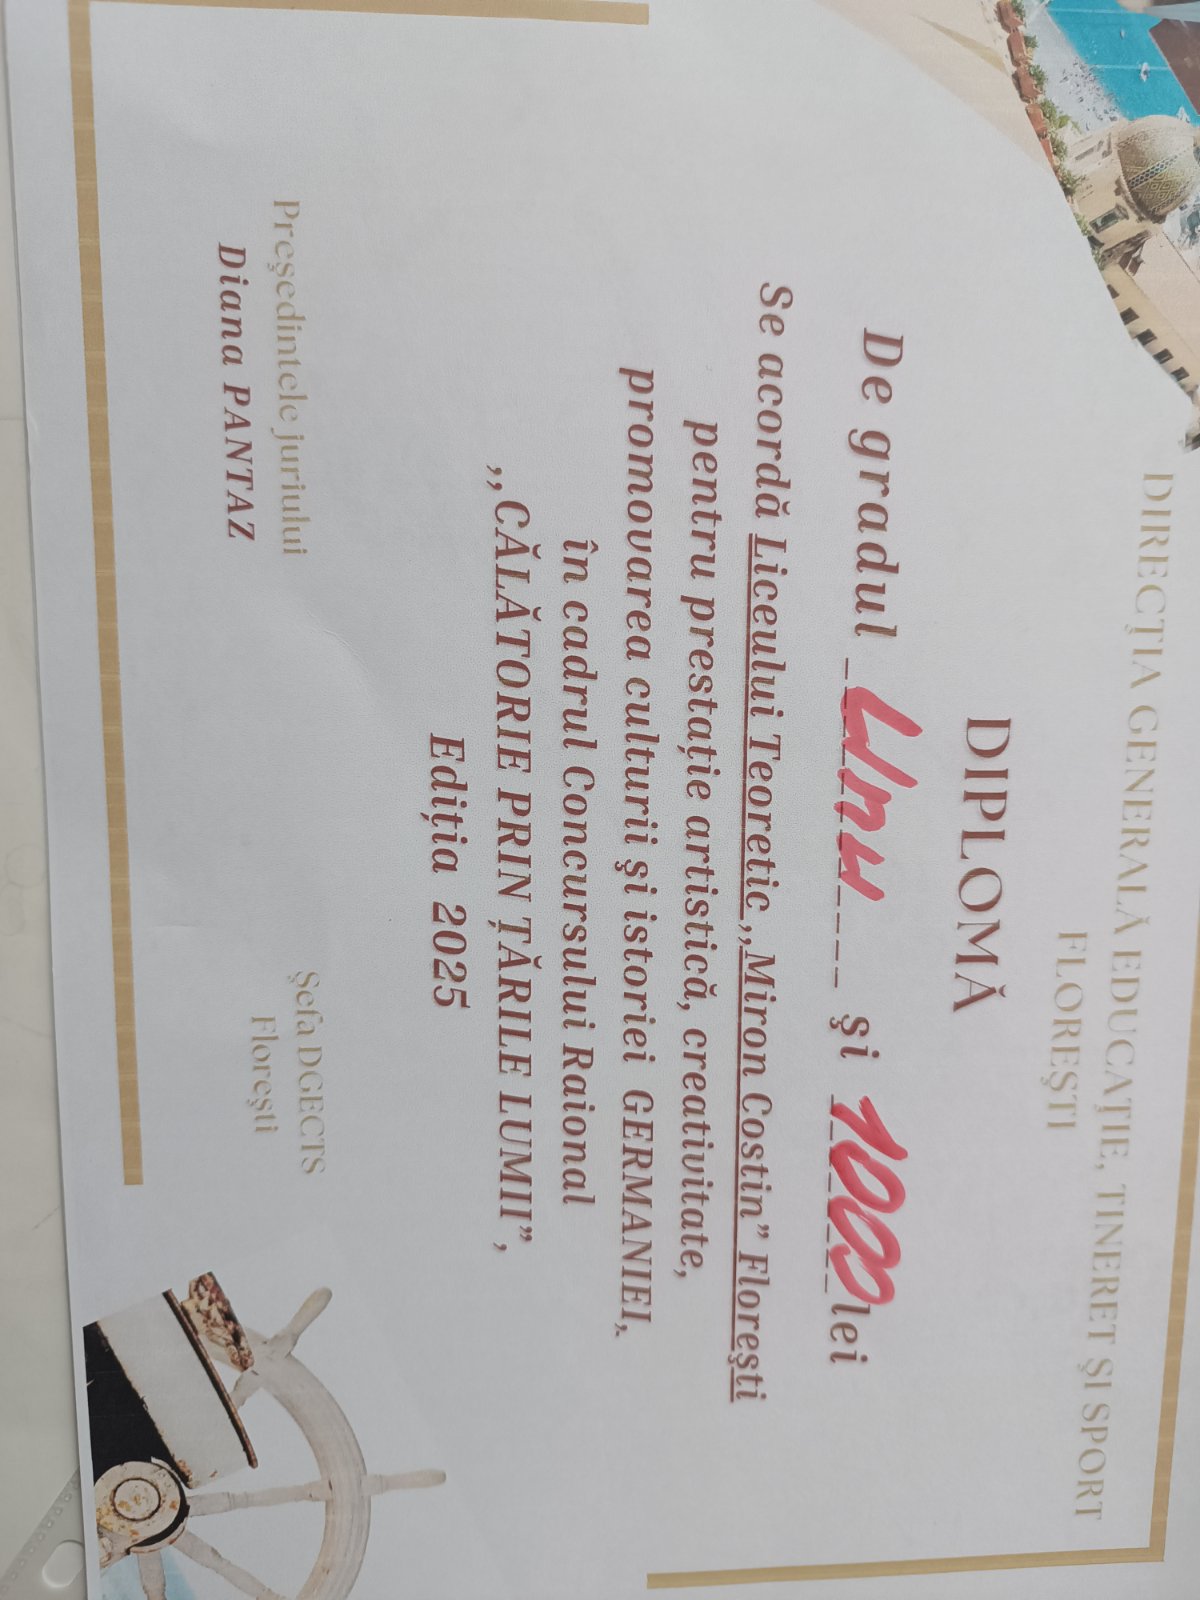 DIRECŢIA GENERALĂ EDUCAŢIE, TINERET ŞI SPORT
FLOREŞTI
DIPLOMĂ
De gradul Unu și 1000 lei
Se acordă Liceului Teoretic ,,Miron Costin” Floreşti
pentru prestație artistică, creativitate,
promovarea culturii şi istoriei GERMANIEI,
în cadrul Concursului Raional
,,CĂLĂTORIE PRIN ȚĂRILE LUMII”,
Ediția 2025
Preşedintele juriului
Diana PANTAZ
Şefa DGECTS
Floreşti